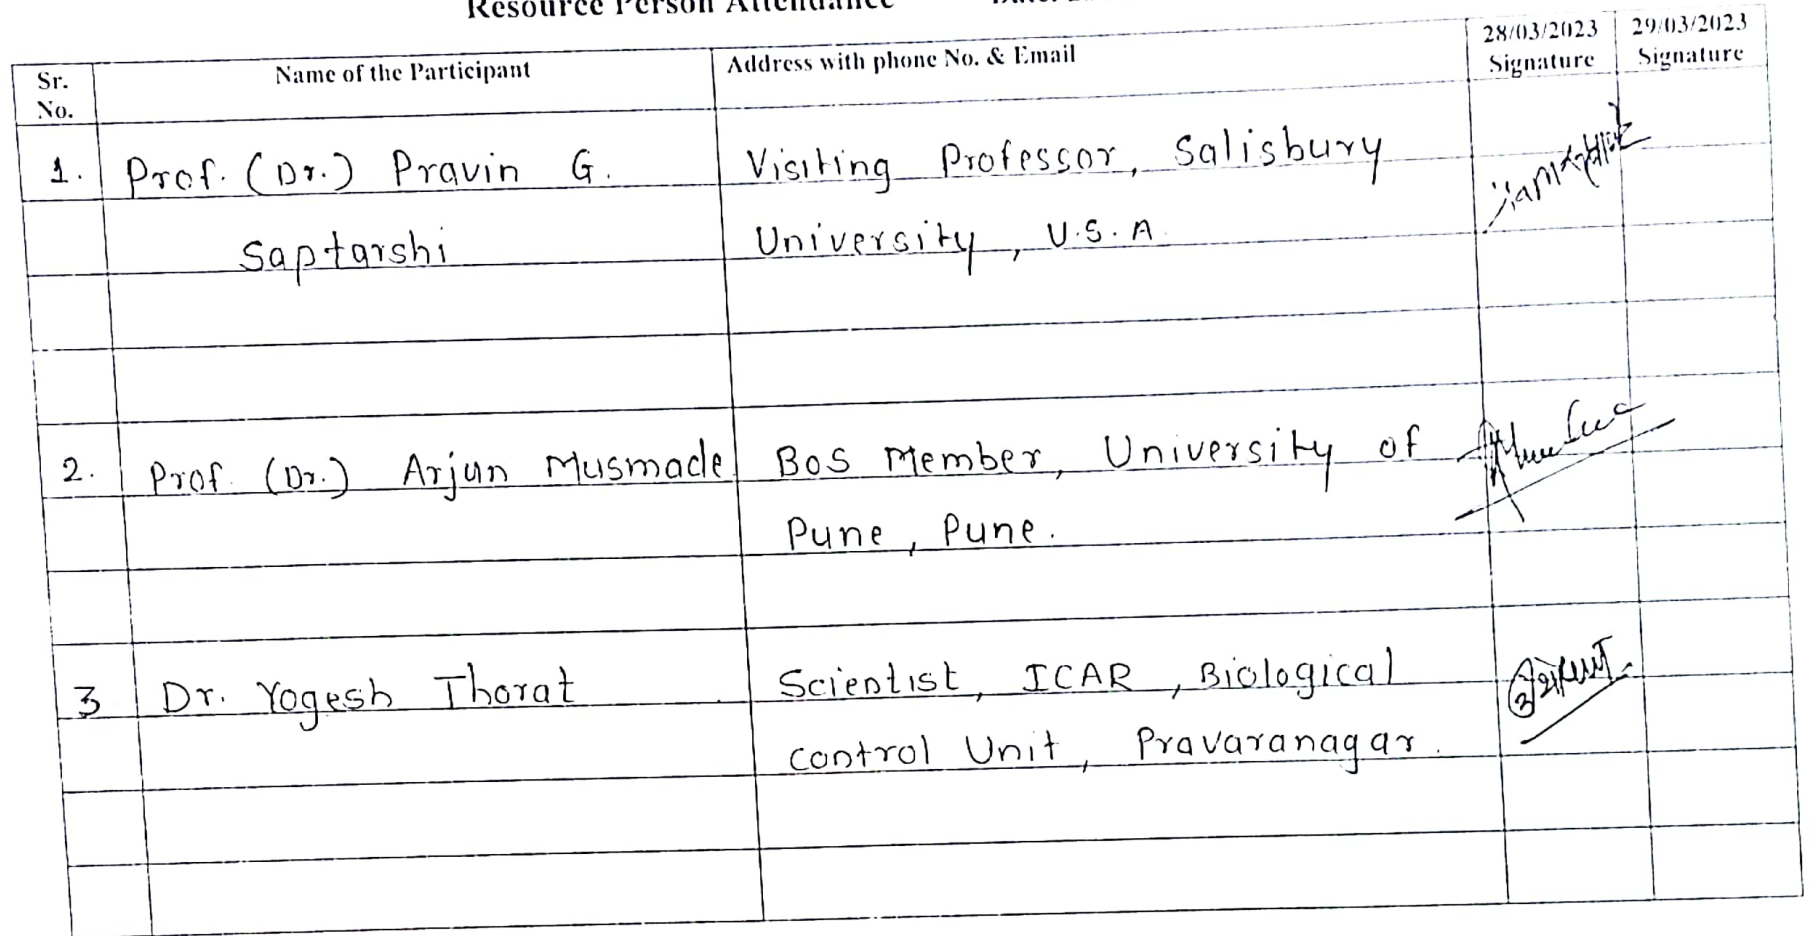 Resource Person Attendance
Sr. No.
Name of the Participant
Address with phone No. & Email
28/03/2023 Signature
29/03/2023 Signature
1. Prof. (Dr.) Pravin G. Visiting Professor, Salisbury
Saptarshi University, U.S.A.
2. Prof. (Dr.) Arjun Musmade BOS Member, University of
Pune, Pune.
3 Dr. Yogesh Thorat Scientist, ICAR, Biological
control Unit, Pravaranagar.